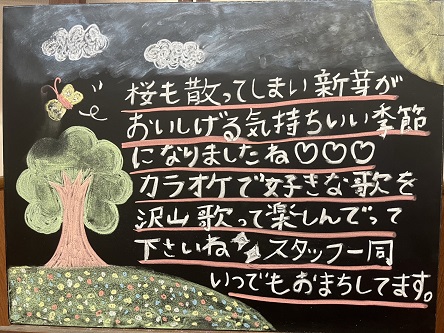 桜も散ってしまい新芽が
おいしげる気持ちいい季節
になりましたね♡♡♡
カラオケで好きな歌を
沢山歌って楽しんでって
下さいね✨スタッフ一同
いつでもおまちしてます。